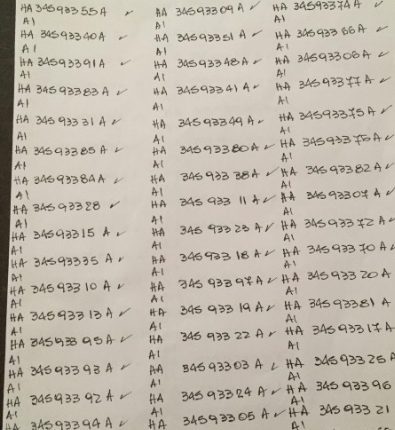 HA 34593355 A ✓
A1
HA 34593340 A ✓
A1
HA 34593391 A ✓
A1
HA 34593383 A ✓
A1
HA 34593331 A ✓
A1
HA 34593385 A ✓
A1
HA 34593384 A ✓
A1
HA 34593328 ✓
A1
HA 34593315 A ✓
A1
HA 34593335 A ✓
A1
HA 34593310 A ✓
A1
HA 34593313 A ✓
A1
HA 34593395 A ✓
A1
HA 34593393 A ✓
A1
HA 34593392 A ✓
A1
HA 34593394 A ✓
HA 34593309 A ✓
A1
HA 34593351 A ✓
A1
HA 34593348 A ✓
A1
HA 34593341 A ✓
A1
HA 34593349 A ✓
A1
HA 34593380 A ✓
A1
HA 34593338 A ✓
A1
HA 34593311 A ✓
A1
HA 34593323 A ✓
A1
HA 34593318 A ✓
A1
HA 34593397 A ✓
A1
HA 34593319 A ✓
A1
HA 34593322 A ✓
A1
HA 34593303 A ✓
A1
HA 34593324 A ✓
A1
HA 34593305 A ✓
HA 34593374 A ✓
A1
HA 34593366 A ✓
A1
HA 34593306 A ✓
A1
HA 34593377 A ✓
A1
HA 34593375 A ✓
A1
HA A ✓
A1
HA 34593382 A ✓
A1
HA 34593307 A ✓
A1
HA 34593372 A ✓
A1
HA 34593370 A ✓
A1
HA 34593320 A
A1
HA 34593381 A
A1
HA 34593317 A
A1
HA A
A1
HA 34593396
A1
HA 34593321